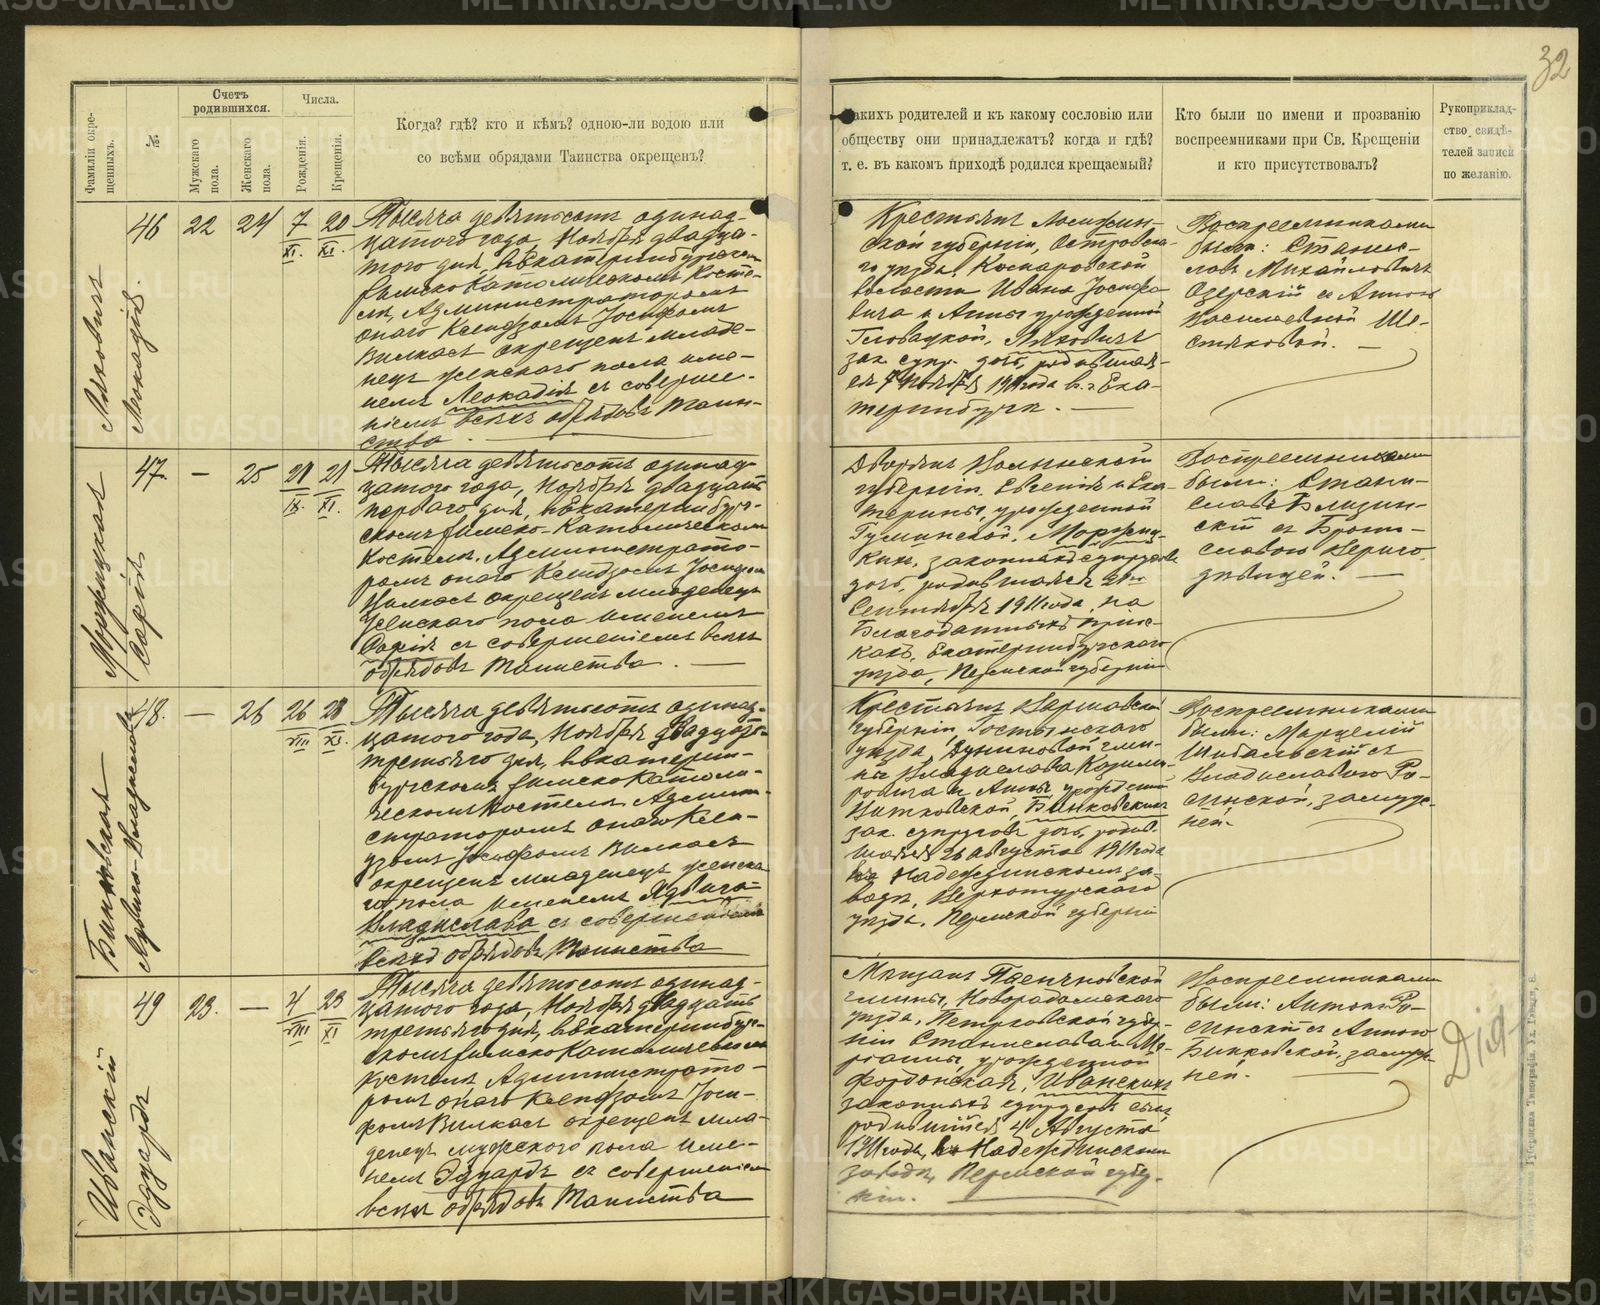 32
Фамилiи окре-
щенныхъ.
№
Счетъ
родившихся.
Мужскаго
пола.
Женскаго
пола.
Числа.
Рожденiя.
Крещенiя.
Когда? гдѣ? кто и кѣмъ? одною-ли водою или
со всѣми обрядами Таинства окрещенъ?
Какихъ родителей и къ какому сословiю или
обществу они принадлежатъ? когда и гдѣ?
т. е. въ какомъ приходѣ родился крещаемый?
Кто были по имени и прозванiю
воспреемниками при Св. Крещенiи
и кто присутствовалъ?
Рукоприклад-
ство свидѣ-
телей записи
по желанiю.
Ляховичъ
Леокадiя.
46 22 24 7 XI. 20 XI.
Тысяча девятьсотъ одинад-
цатого года, Ноября двадца-
того дня, въ Екатеринбургскомъ
Римско Католическомъ Косте-
лѣ, Администраторомъ
онаго Ксендзомъ Iосифомъ
Вилкасъ окрещенъ младе-
нецъ женскаго пола име-
немъ Леокадiя съ соверше-
нiемъ всѣхъ обрядовъ Таин-
ства
Крестьянъ Ломжин-
ской губернiи, Островска-
го уѣзда,
волости Ивана Iосифо-
вича и Анны урожденной
Гловацкой, Ляховичъ
зак. супр. дочь, родившая-
ся 7 Ноября 1911 года въ г. Ека-
теринбургѣ.
Воспреемниками
были: Станис-
лавъ Михайловичъ
Озерскiй съ Анною
Васильевной Ше-
стаковой.
Моржицкая
Софiя
47. — 25 21 IX. 21 XI.
Тысяча девятьсотъ одинад-
цатого года, Ноября двадцать
перваго дня, въ Екатеринбург-
скомъ Римско-Католическомъ
Костелѣ, Администрато-
ромъ онаго Ксендзомъ Iосифомъ
Вилкасъ окрещенъ младенецъ
женскаго пола именемъ
Софiя съ совершенiемъ всѣхъ
обрядовъ Таинства.
Дворянъ Волынской
губернiи, Евгенiя и Ека-
терины, урожденной
Гуминской, Моржиц-
кихъ, законныхъ супруговъ
дочь, родившаяся 21го
Сентября 1911 года, на
Благодатныхъ прiис-
кахъ, Екатеринбургскаго
уѣзда, Пермской губернiи
Воспреемниками
были: Стани-
славъ Близин-
скiй съ Брони-
славою
Бинковская
Ядвига-Владислава
48. — 26 26 VIII 23 XI.
Тысяча девятьсотъ одинад-
цатого года, Ноября двадцать
третьяго дня, въ Екатерин-
бургскомъ Римско Католи-
ческомъ Костелѣ Админи-
страторомъ онаго Ксен-
дзомъ Iосифомъ Вилкасъ
окрещенъ младенецъ женска-
го пола именемъ Ядвига-
Владислава съ совершенiемъ
всѣхъ обрядовъ Таинства
Крестьянъ Варшавской
губернiи, Гостынскаго
уѣзда, Дуниновской гми-
ны Владислава Казими-
ровича и Анны урожденной
Витковской, Бинковскихъ
зак. супруговъ дочь, родив-
шаяся 26 Августа 1911 года
въ Надеждинскомъ за-
водѣ, Верхотурскаго
уѣзда, Пермской губернiи
Воспреемниками
были: Марцелiй
съ
Владиславою Ро-
синской, замуж-
ней.
Иванскiй
Эдуардъ
49 23. — 4 VIII 23 XI
Тысяча девятьсотъ одинад-
цатого года, Ноября двадцать
третьяго дня, въ Екатеринбург-
скомъ Римско Католическомъ
Костелѣ Администрато-
ромъ онаго Ксендзомъ Iоси-
фомъ Вилкасъ окрещенъ мла-
денецъ мужского пола име-
немъ Эдуардъ съ совершенiемъ
всѣхъ обрядовъ Таинства
Мѣщанъ
гмины, Новорадомскаго
уѣзда, Петроковской губер-
нiи Станислава и Ма-
рiанны, урожденной
Иванскихъ
законныхъ супруговъ сынъ
родившiйся 4 Августа
1911 года, въ Надеждинскомъ
заводѣ, Пермской губер-
нiи.
Воспреемниками
были: Антонъ Ро-
синскiй съ Анною
Бинковской, замуж-
ней.
METRIKI.GASO-URAL.RU